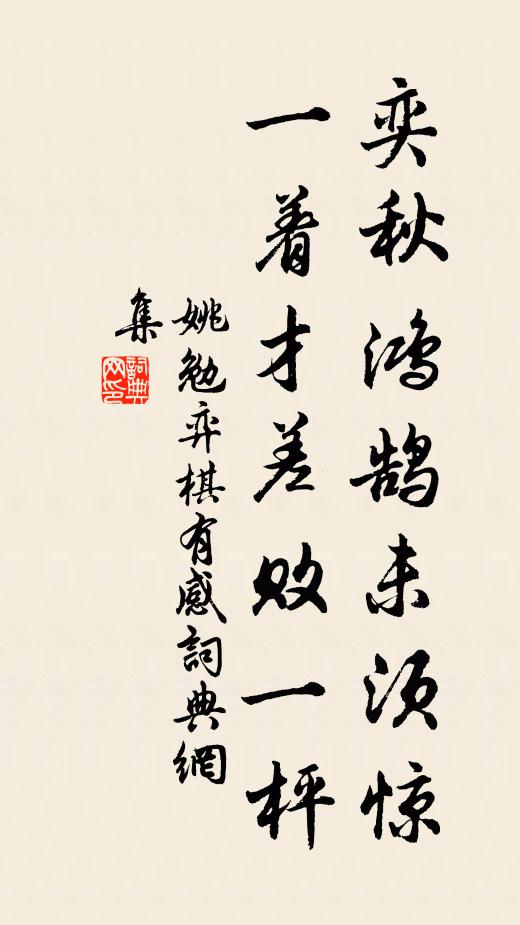 奕秋鸿鹄未须惊
一着才差败一枰
姚勉弈棋有感詞典網
集
詞典
网印